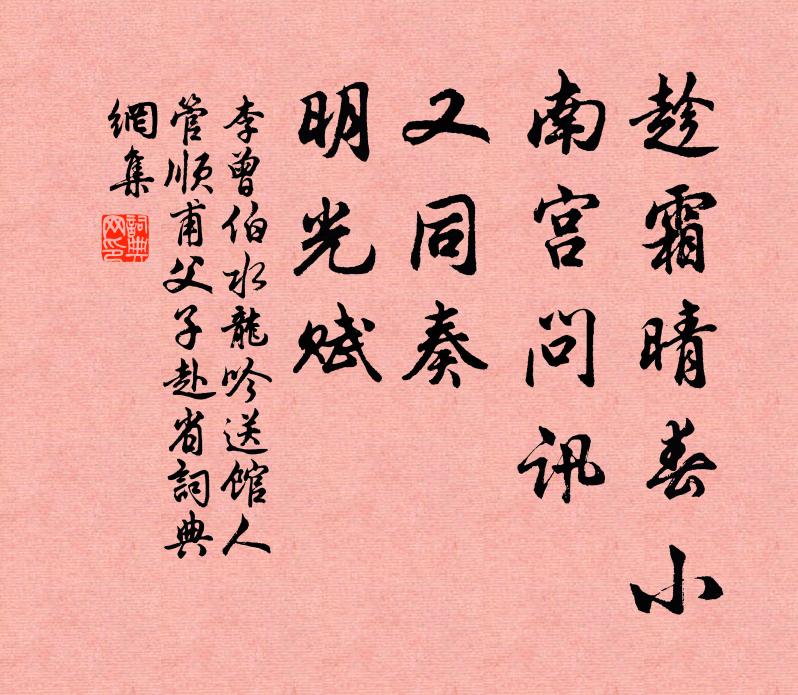 趁霜晴春小
南宫问讯
又同奏
明光赋
李曾伯水龍吟送館人
管順甫父子赴省詞典
網集
詞典网印